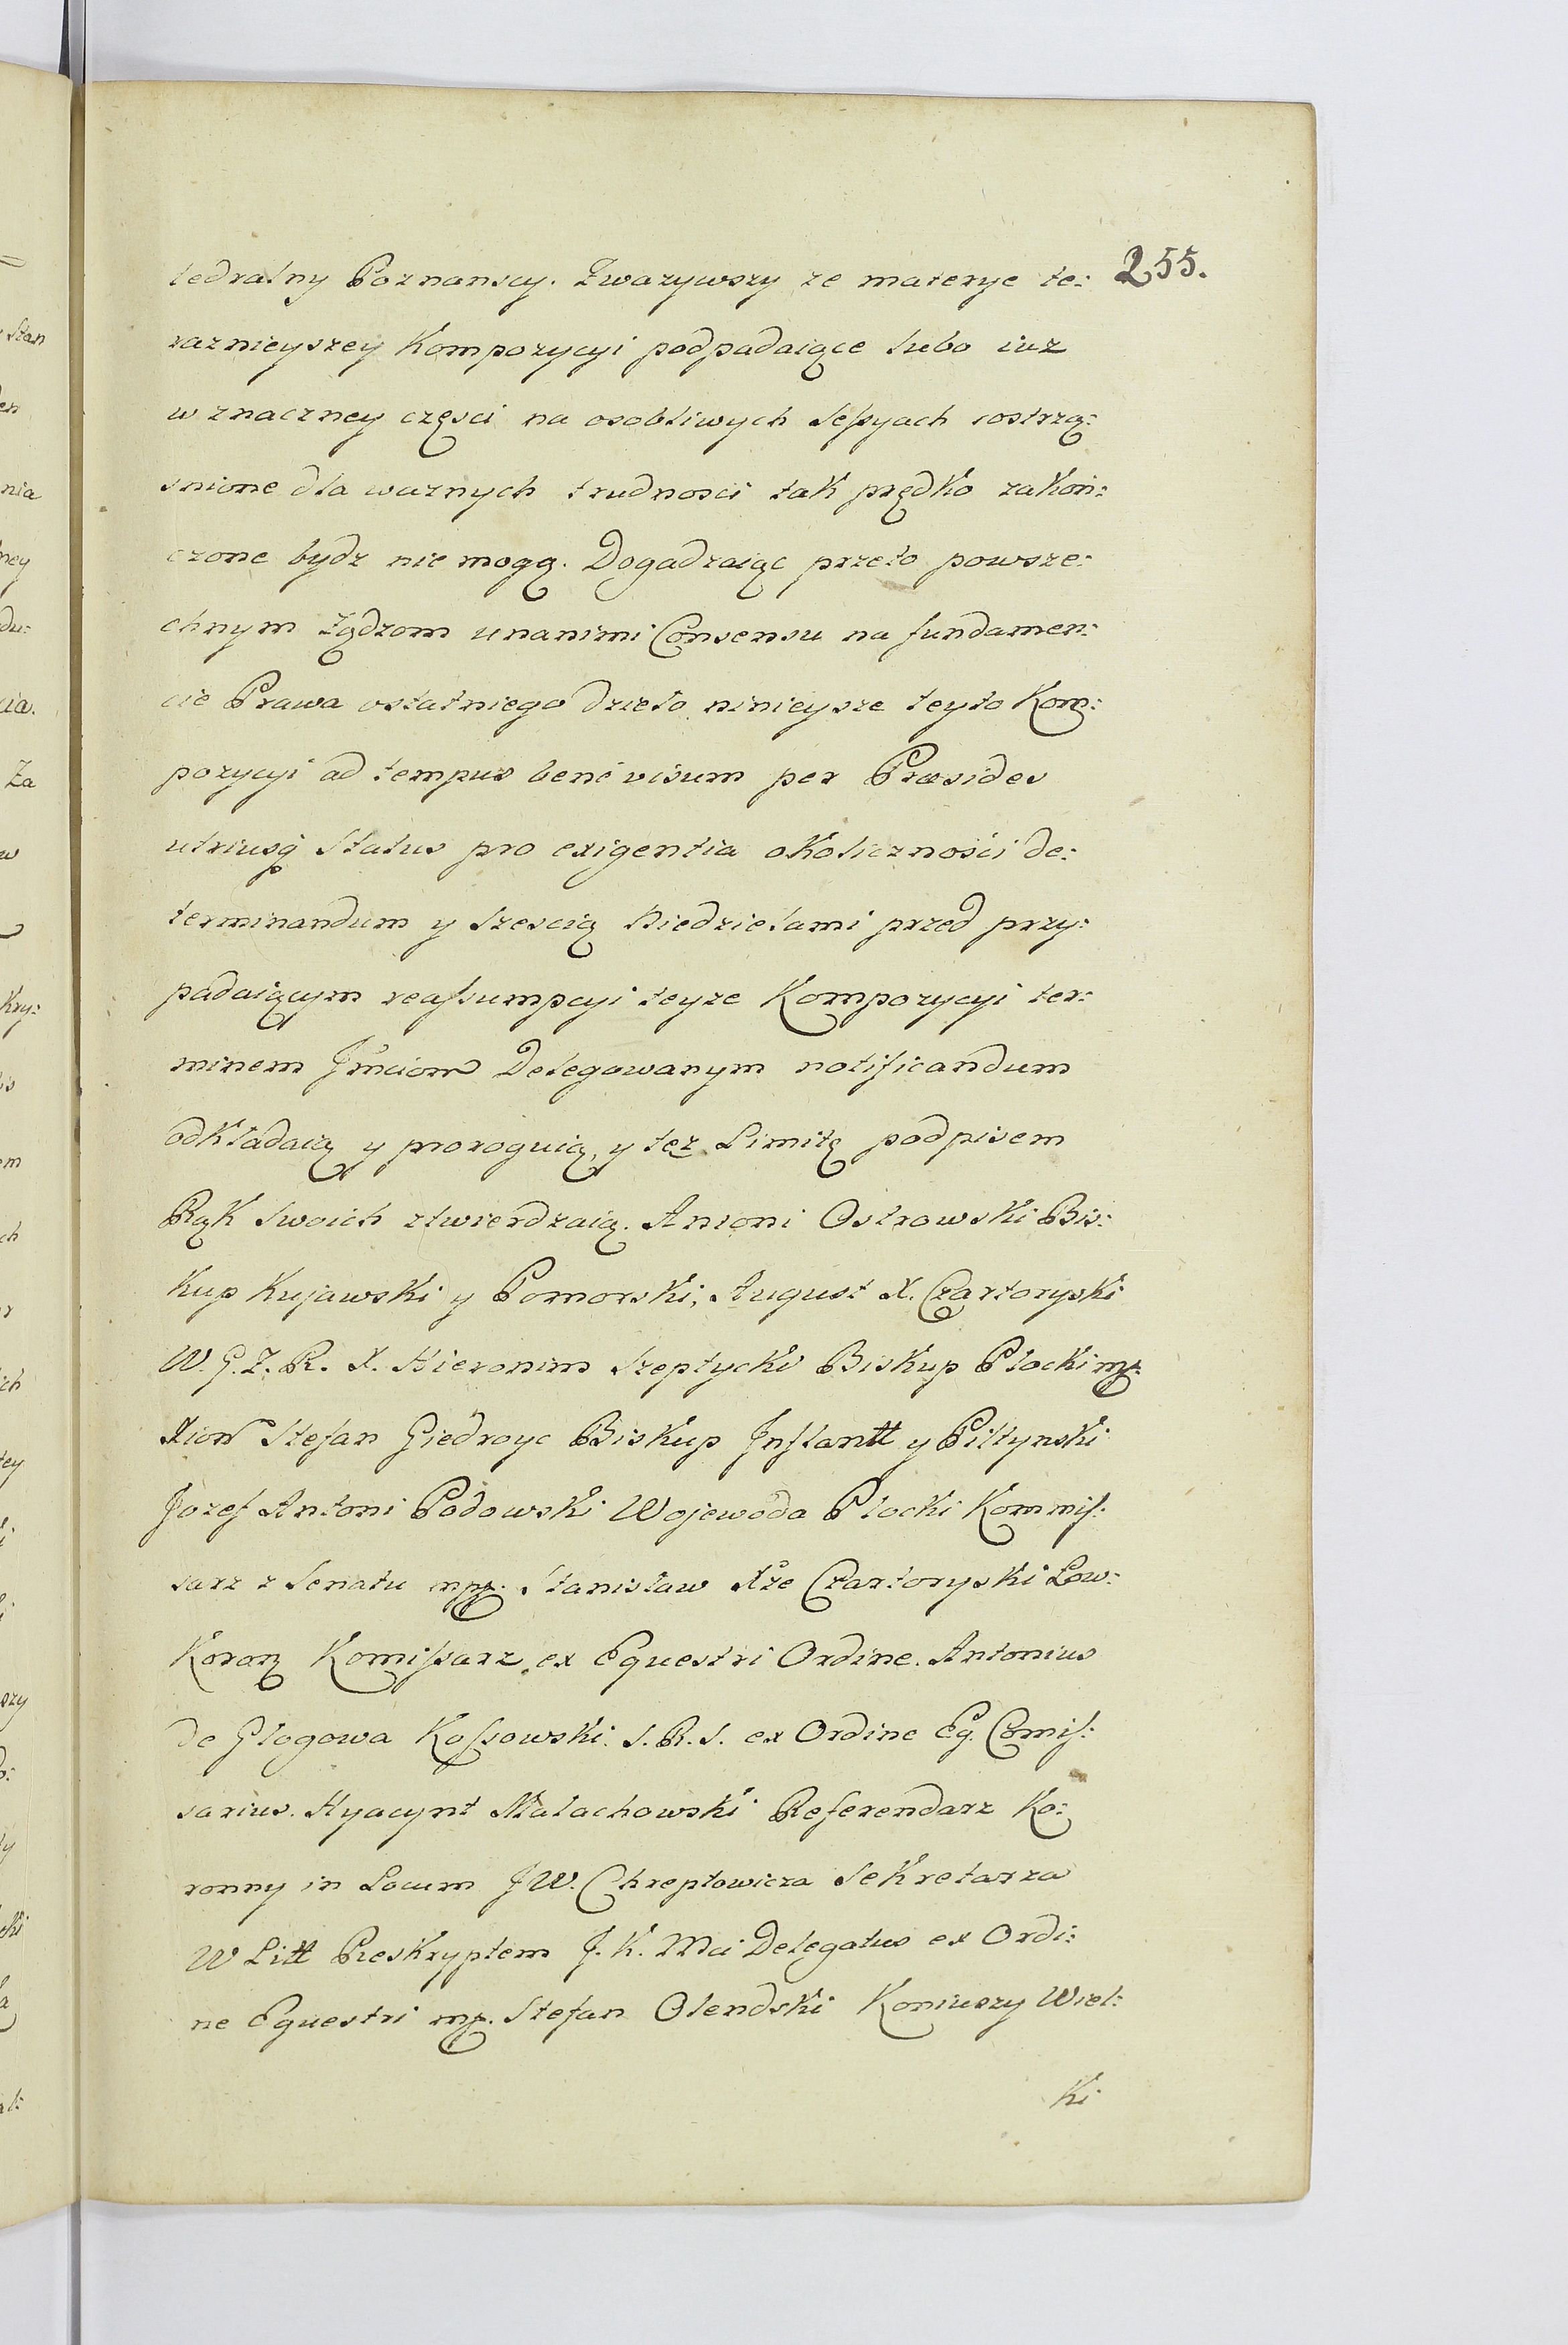 tedralny Poznanscy. Zwazywszy ze materye te:
255.
raznieyszey Kompozycyi podpadaiące lubo iuz
w znaczney częsci na osobliwych Sessyach rostrzą:
snione dla waznych trudnosci tak prędko zakoń:
czone bydz nie mogą. Dogadzaiąc przeto powsze:
chnym Ządzom unanimi Consensu na fundamen:
cie Prawa ostatniego dzieło ninieysze teyto Kom:
pozycyi ad tempus benè visum per Præsides
utriusq Status pro exigentia okoliczności de:
terminandum y Szescią Niedzielami przed przy:
padaiącym reassumpcyi teyze Kompozycyi ter:
minem Jmciom Delegowanym notificandum
odkładaią y proroguią, y tęz Limitę podpisem
Rąk Swoich ztwierdzaią. Antoni Ostrowski Bis:
kup Kujawski y Pomorski, August X. Czartoryski
W. G. Z. R. X. Hieronim Szeptycki Biskup Płocki mp.
Xion Stefan Giedroyc Biskup Inflantt y Piltynski
Jozef Antoni Podowski Wojewoda Płocki Kommis:
sarz z Senatu mpp. Stanisław Xże Czartoryski Łow:
Koron Komissarz ex Equestri Ordine. Antonius
de Głogowa Kossowski. S. R. S. ex Ordine Eq. Comis:
sarius. Hyacynt Małachowski Referendarz Ko:
ronny in Locum JW. Chreptowicza Sekretarza
W Litt Reskryptem J. K. Mci Delegatus ex Ordi:
ne Equestri mp. Stefan Olendski Koniuszy Wiel:
ki